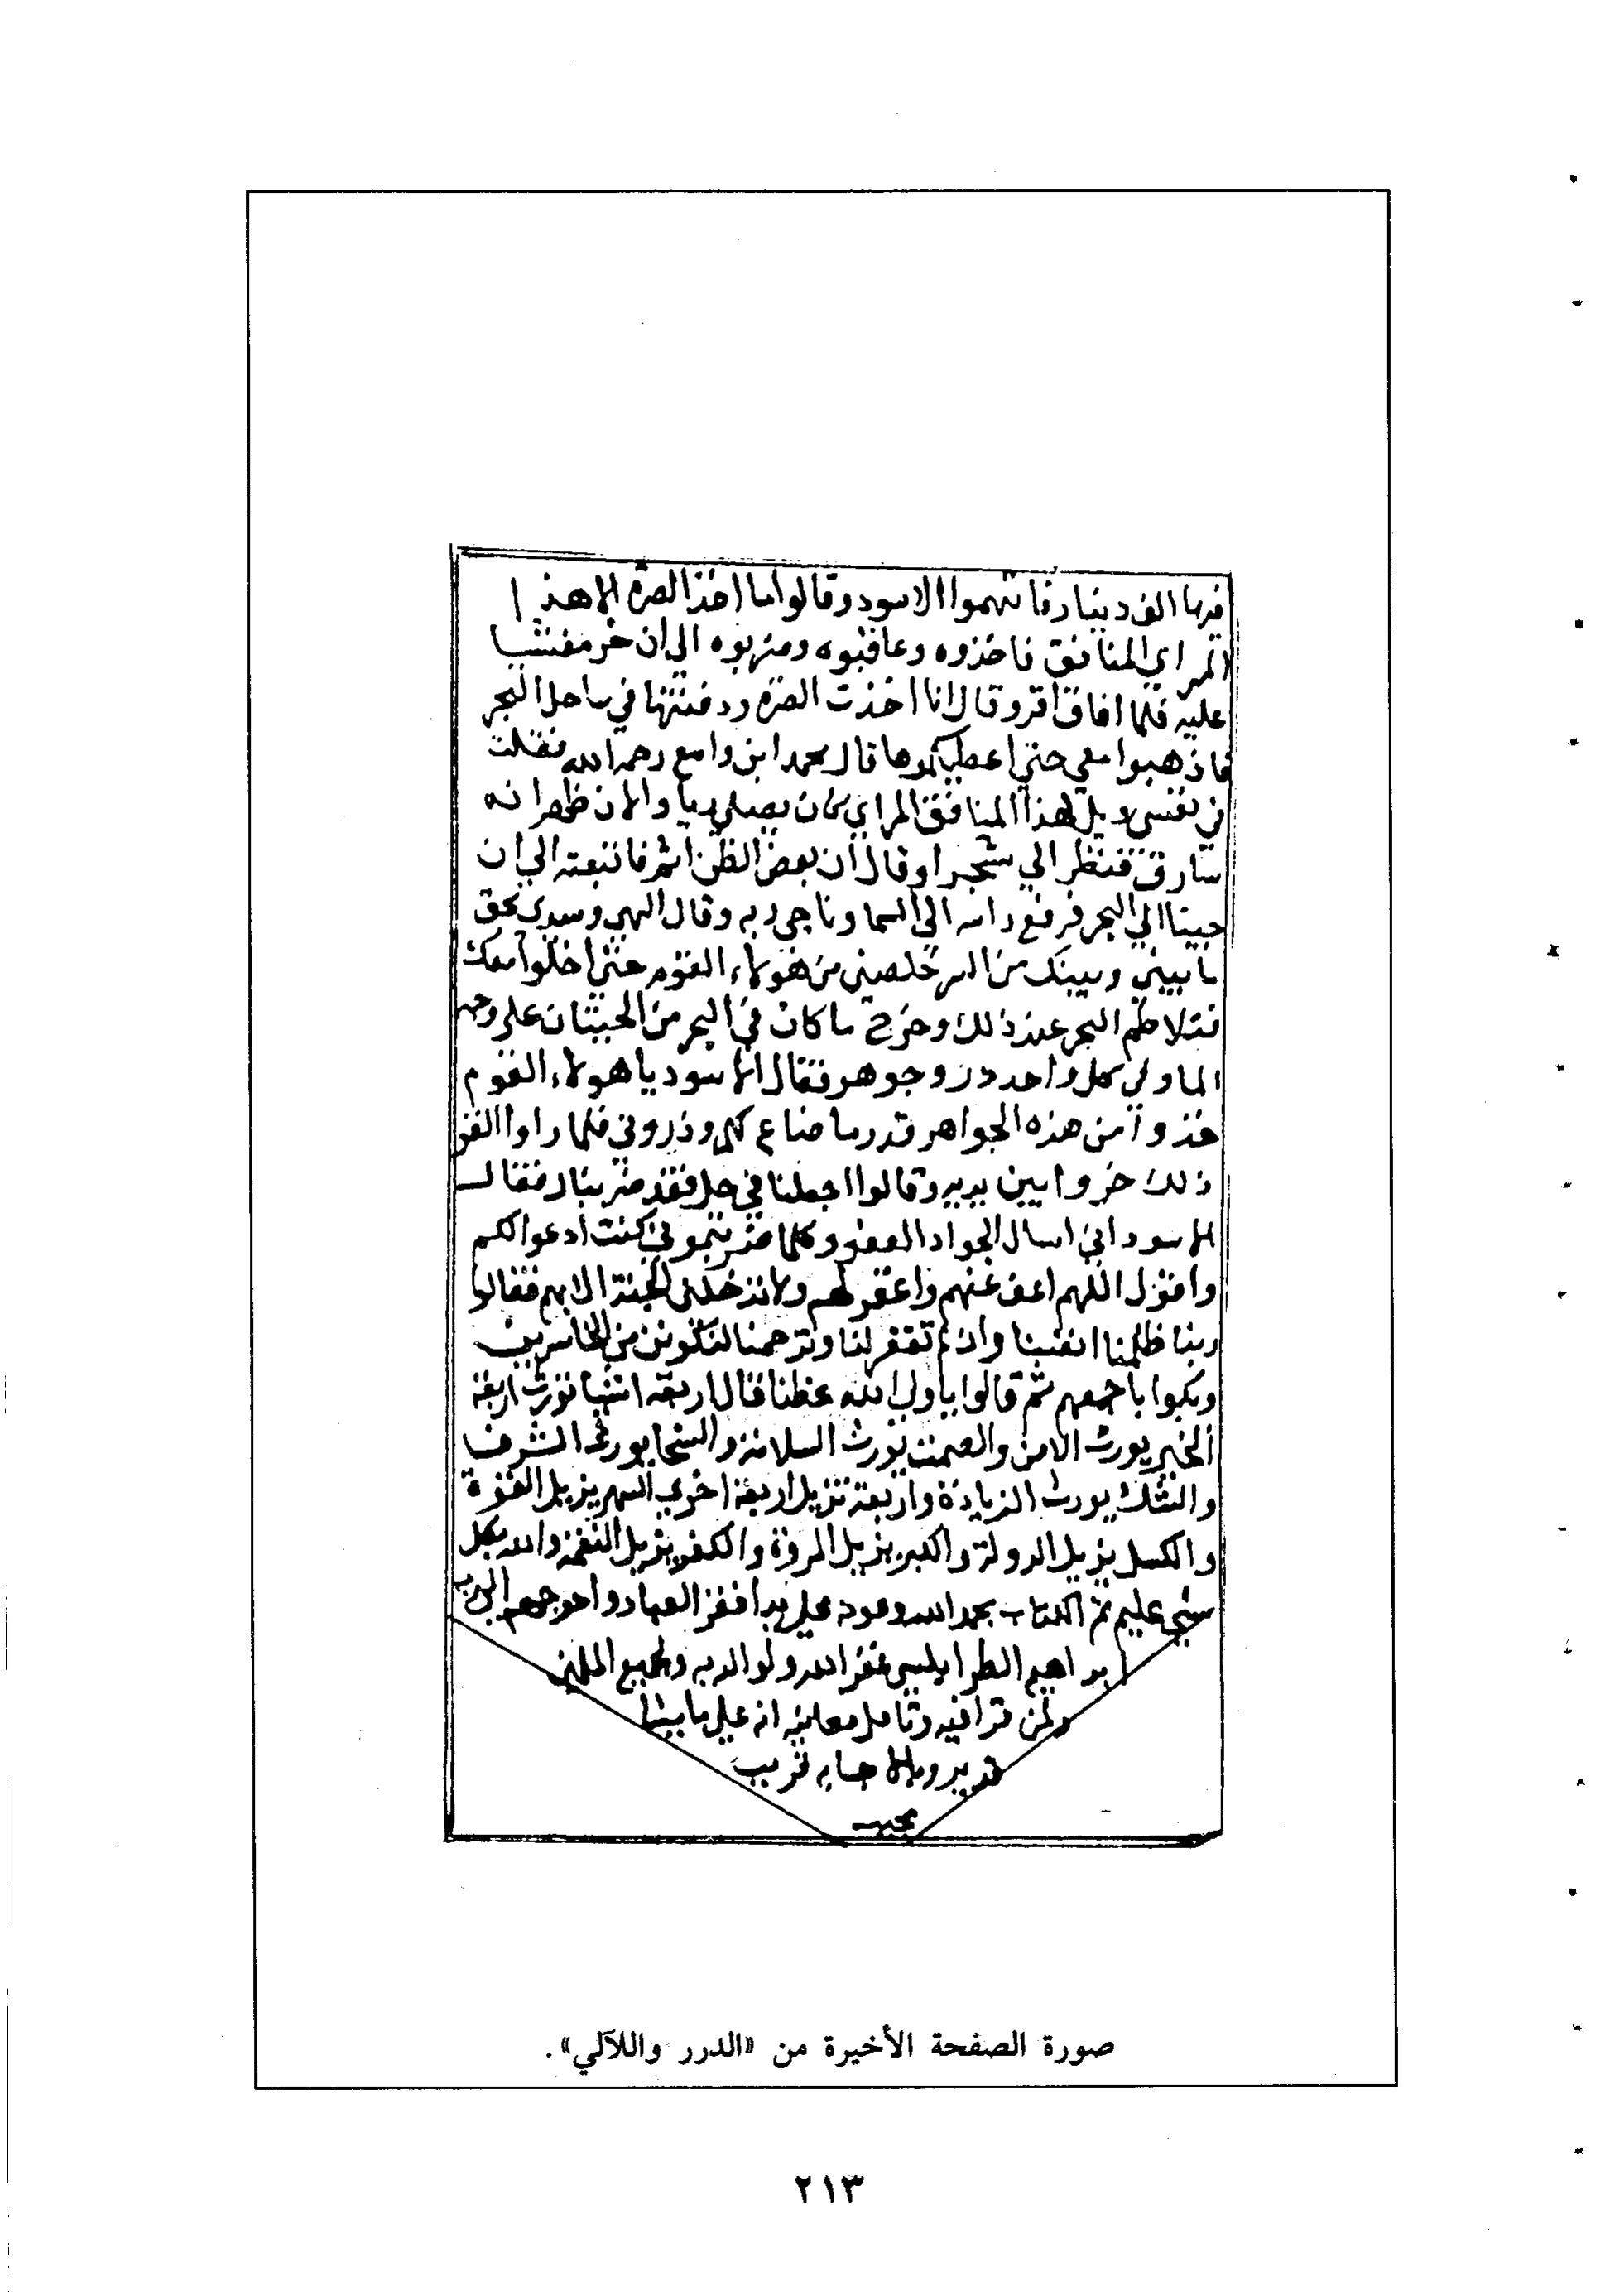 فيها الف دينار فاتهموا الاسود وقالوا ما اخذ الصرة الا هذا
المراي المنافق فاخذوه وعاقبوه وضربوه الي ان خر مغشيا
عليه فلما افاق اقر وقال انا اخذت الصرة ودفنتها في ساحل البحر
فاذهبوا معي حتي اعطيكموها قال محمد ابن واسع رحمه الله فقلت
في نفسي ويل لهذا المنافق المراي كان يصلي ريا والان ظهر انه
سارق فنظر الي شجرا وقال ان بعض الظن اثم فاتبعته الي ان
جينا الي البحر فرفع راسه الي السما وناجي ربه وقال الهي وسيدي بحق
ما بيني وبينك من السر خلصني من هولاء القوم حتي اخلوا معك
فتلاطم البحر عند ذلك وخرج ما كان في البحر من الحيتان علي وجه
الما وفي كل واحد در وجوهر فقال الاسود يا هولاء القوم
خذوا من هذه الجواهر قدر ما ضاع لكم وذروني فلما راوا القوم
ذلك خروا بين يديه وقالوا اجعلنا في حل فقد ضربناك فقال
الاسود اني اسال الجواد الغفور وكلما ضربتموني كنت ادعوا لكم
واقول اللهم اعف عنهم واغفر لهم ولا تدخلني الجنة الا بهم فقالوا
ربنا ظلمنا انفسنا وان لم تغفر لنا وترحمنا لنكونن من الخاسرين
وبكوا باجمعهم ثم قالوا يا ولي الله عظنا فقال اربعة اشيا تورث اربعة
الخير يورث الامن والصمت يورث السلامة والسخا يورث الشرف
والشكر يورث الزيادة واربعة تزيل اربعة اخري السهر يزيل القوة
والكسل يزيل الدولة والكبر يزيل المروة والكفر يزيل النعمة والله بكل
شي عليم تم الكتاب بحمد الله وعونه علي يد افقر العباد واحوجهم الي ربه
ابراهيم الطرابلسي غفر الله له ولوالديه ولجميع المسلمين
ولمن قرا فيه وتامل معانيه انه علي ما يشا
قدير وبالاجابه قريب
مجيب
صورة الصفحة الأخيرة من «الدرر واللآلي».
٢١٣